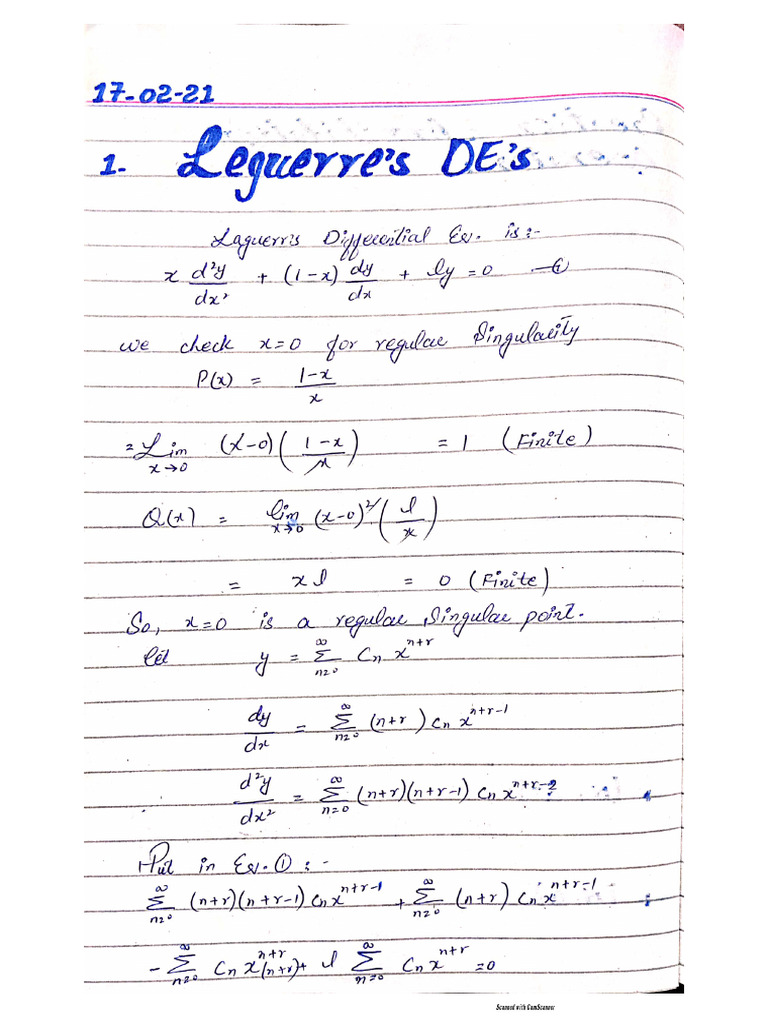 17-02-21
1- Leguerre's DE's
Laguerr's Differential Eq. is:-
x d²y/dx² + (1-x) dy/dx + ly = 0 —①
we check x=0 for regular Singularity
P(x) = 1-x/x
= Lim x→0 (x-0)(1-x/x) = 1 (Finite)
Q(x) = lim x→0 (x-0)²(l/x)
= xl = 0 (Finite)
So, x=0 is a regular Singular point.
let y = ∑ n=0 ∞ Cn x^n+r
dy/dx = ∑ n=0 ∞ (n+r) Cn x^n+r-1
d²y/dx² = ∑ n=0 ∞ (n+r)(n+r-1) Cn x^n+r-2
Put in Eq. ① :-
∑ n=0 ∞ (n+r)(n+r-1) Cn x^n+r-1 + ∑ n=0 ∞ (n+r) Cn x^n+r-1
- ∑ n=0 ∞ Cn x^n+r (n+r) + l ∑ n=0 ∞ Cn x^n+r = 0
Scanned with CamScanner